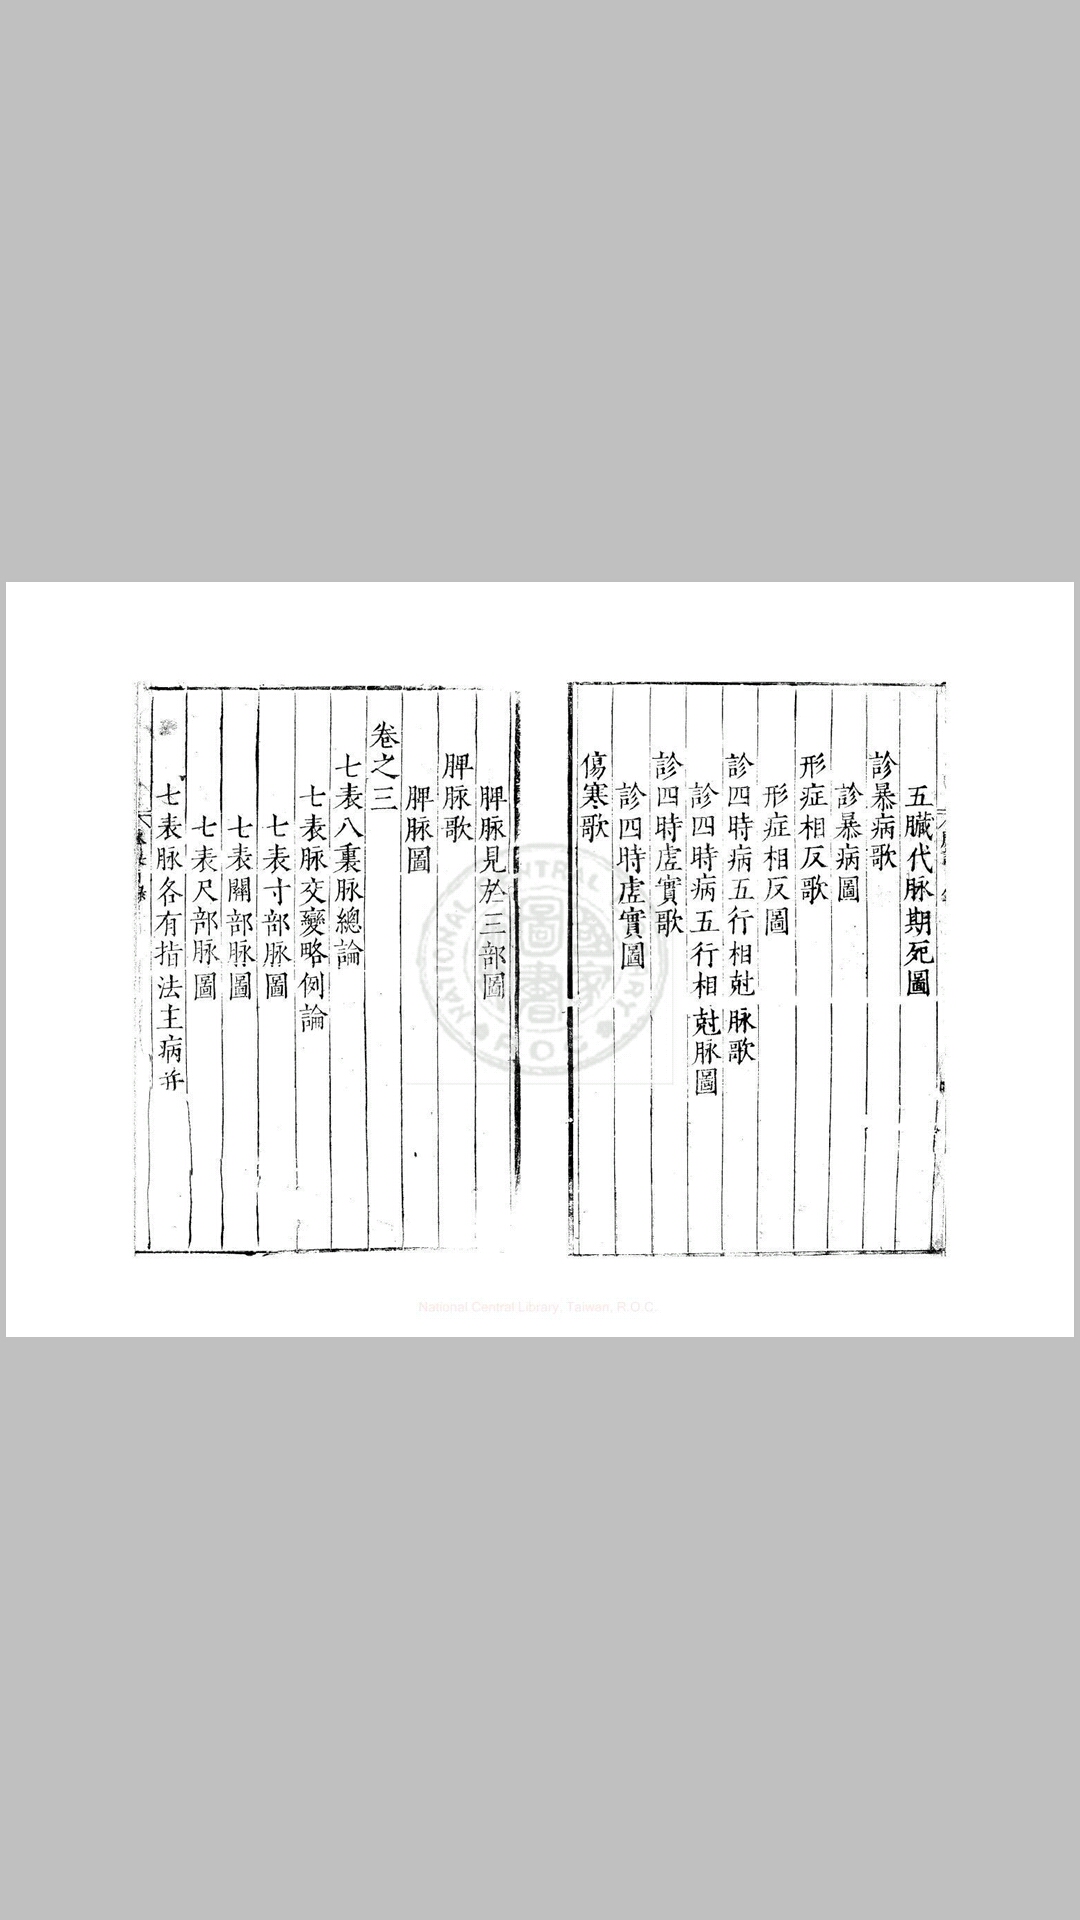 五臟代脉期死圖
診暴病歌
診暴病圖
形症相反歌
形症相反圖
診四時病五行相尅脉歌
診四時病五行相尅脉圖
診四時虛實歌
診四時虛實圖
傷寒歌
脾脉見於三部圖
脾脉歌
脾脉圖
卷之三
七表八裏脉總論
七表脉交變略例論
七表寸部脉圖
七表關部脉圖
七表尺部脉圖
七表脉各有指法主病并
NATIONAL CENTRAL LIBRARY R.O.C.
National Central Library, Taiwan, R.O.C.